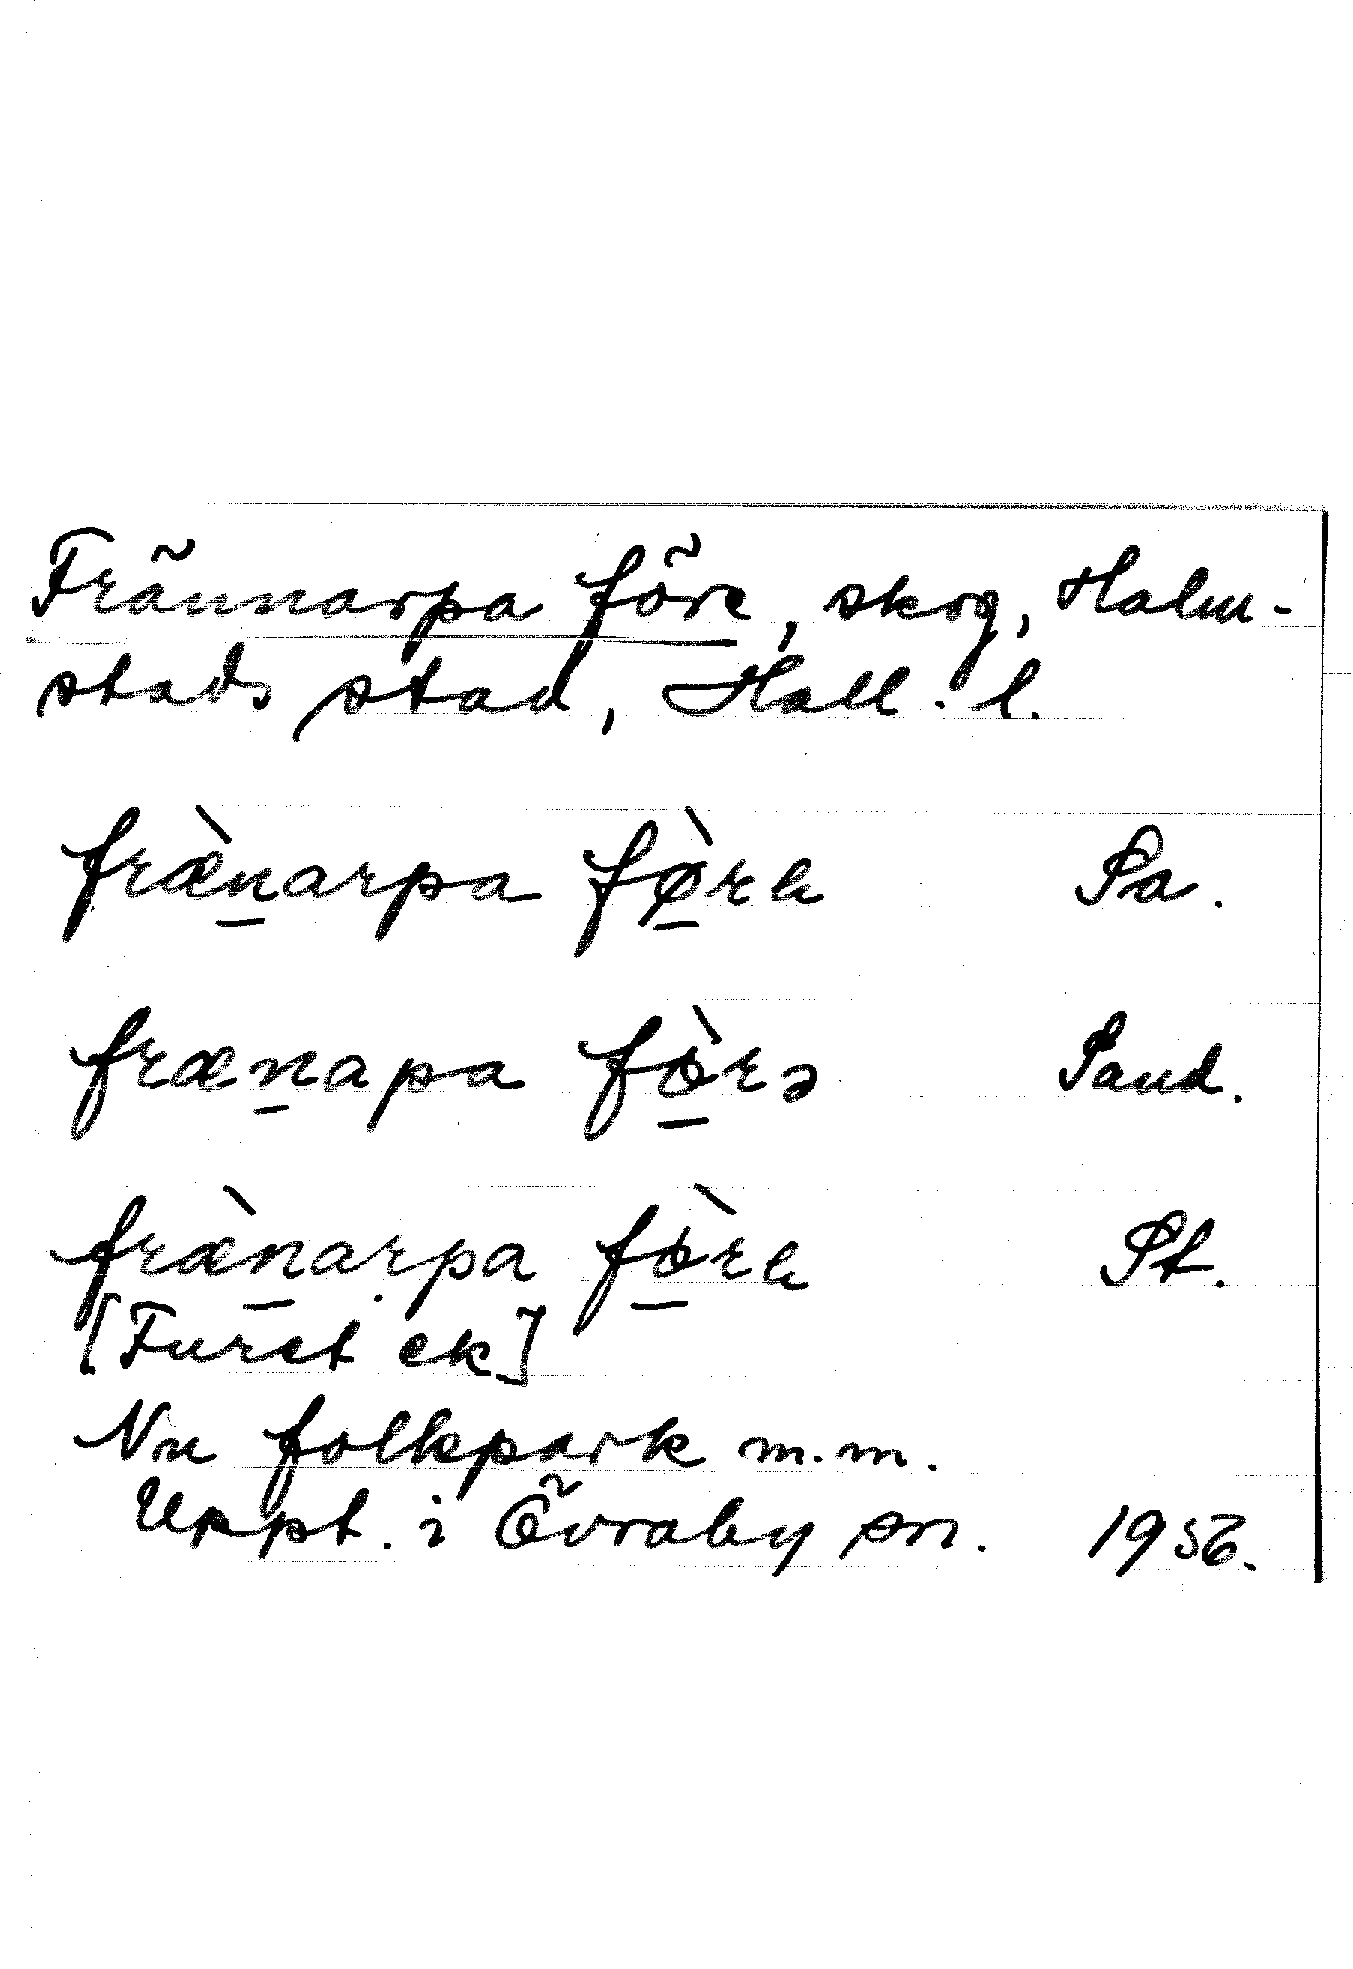 Frännarpa före, skog, Halm-
stads stad, Hall. l.
fræ̀n̲arpa fø̲̀re Pa.
fræn̲apa fö̲̀rə Paud.
fræ̀n̲arpa fö̲̀re Pt.
[Furet ek]
Nu folkpark m.m.
Uppt. i Övraby sn. 1956.